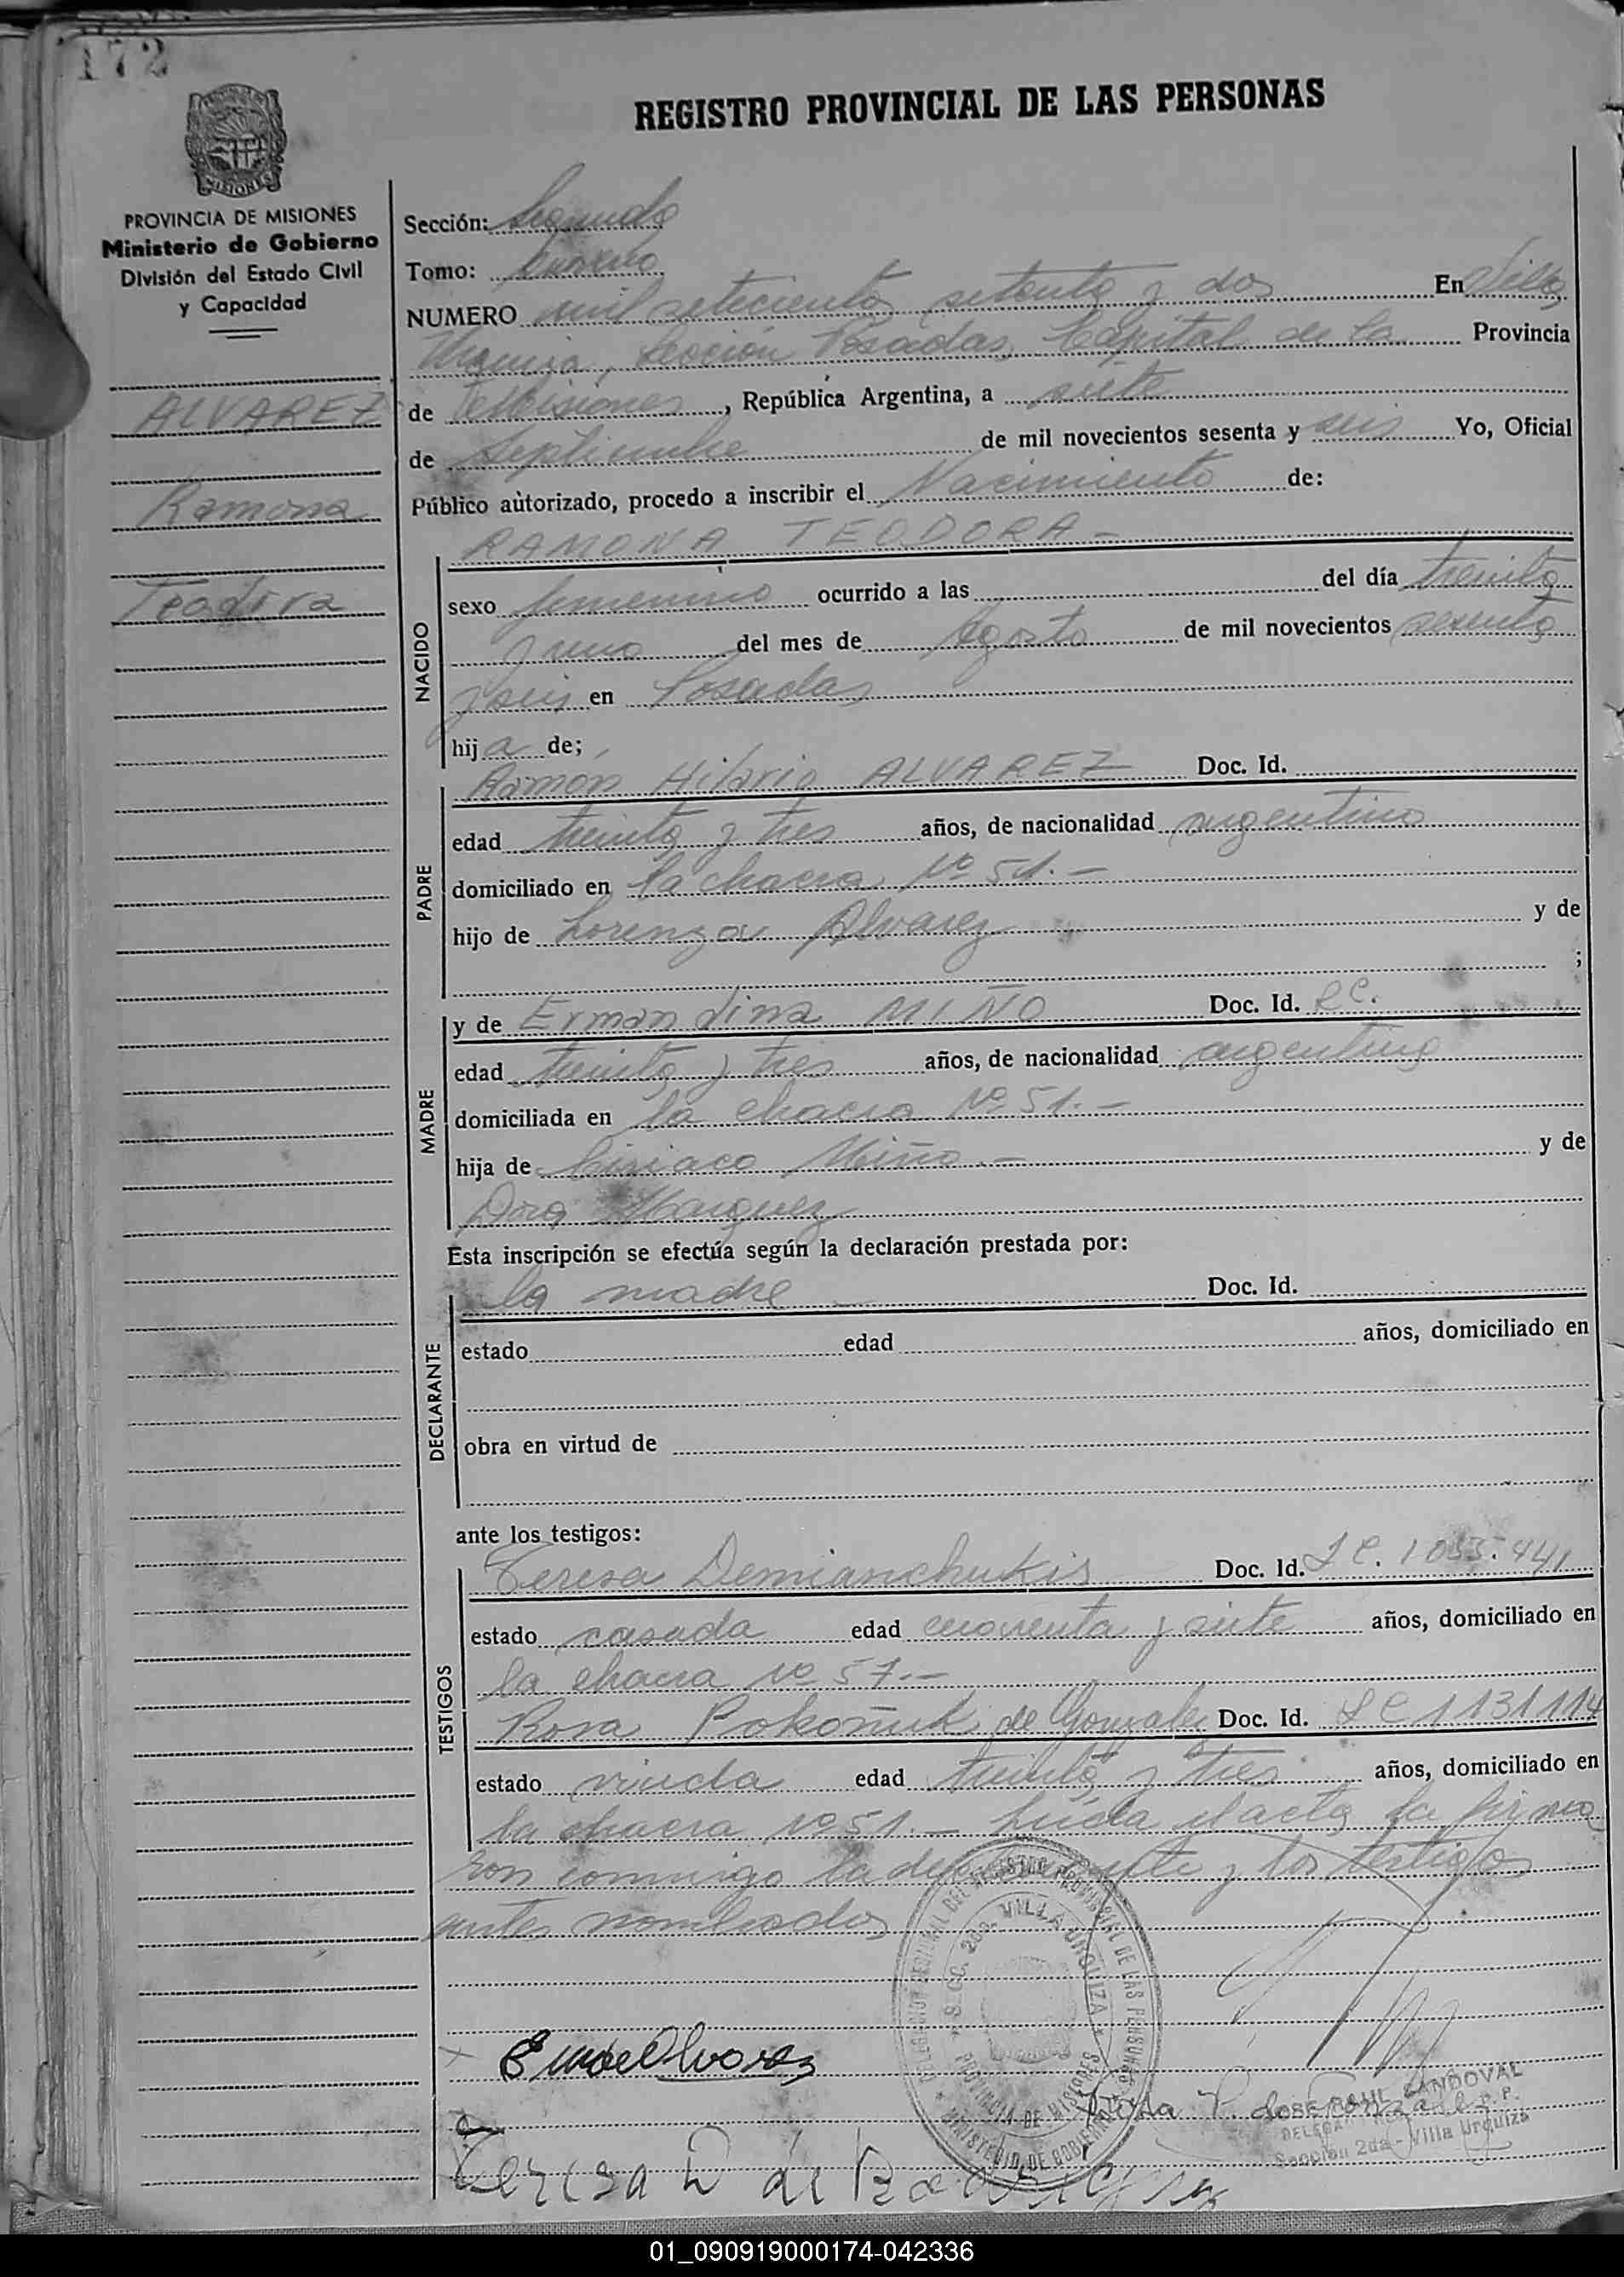 172
REGISTRO PROVINCIAL DE LAS PERSONAS
MISIONES
PROVINCIA DE MISIONES
Ministerio de Gobierno
División del Estado Civil
y Capacidad
ALVAREZ
Ramona
Teodora
Sección: Segunda
Tomo: Cuarto
NUMERO mil setecientos setenta y dos En Villa
Urquiza, Sección Posadas, Capital de la Provincia
de Misiones, República Argentina, a siete
de Septiembre de mil novecientos sesenta y seis Yo, Oficial
Público autorizado, procedo a inscribir el Nacimiento de:
RAMONA TEODORA -
NACIDO
sexo femenino ocurrido a las del día treinta
y uno del mes de Agosto de mil novecientos sesenta
y seis en Posadas
hija de;
Ramón Hilario ALVAREZ Doc. Id.
PADRE
edad treinta y tres años, de nacionalidad argentino
domiciliado en la chacra Nº 51.-
hijo de Lorenza Alvarez y de
;
MADRE
y de Ermandina MIÑO Doc. Id. RC.
edad treinta y tres años, de nacionalidad argentina
domiciliada en la chacra Nº 51.-
hija de Ciriaco Miño.- y de
Dora Marquez
Esta inscripción se efectúa según la declaración prestada por:
la madre Doc. Id.
DECLARANTE
estado edad años, domiciliado en
obra en virtud de
ante los testigos:
TESTIGOS
Teresa Demianchukis Doc. Id. LC. 1055.441
estado casada edad cuarenta y siete años, domiciliado en
la chacra Nº 57.-
Rosa Pokoñuk de Gonzalez Doc. Id. LC 1131114
estado viuda edad treinta y tres años, domiciliado en
la chacra Nº 51.- Leída el acta, la firma
ron conmigo la declarante y los testigos
antes nombrados
DEL REGISTRO PROVINCIAL DE LAS PERSONAS
SECC. 2da. VILLA URQUIZA
PROVINCIA DE MISIONES
MINISTERIO DE GOBIERNO
E M de Alvarez
Rosa P. de Gonzalez
JOSE RAUL SANDOVAL
Sección 2da - Villa Urquiza
Teresa D de
01_090919000174-042336